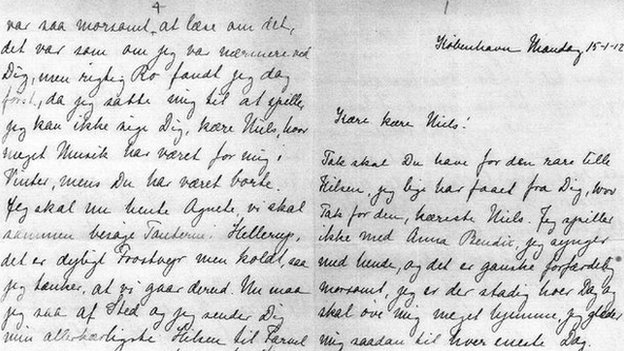 1
København Mandag 15-1-12
Kære kære Niels!
Tak skal Du have for den rare lille
Hilsen, jeg lige har faaet fra Dig,
Tak for den, kæreste Niels. Jeg spiller
ikke med Anna Bendix, jeg synger
med hende, og det er ganske forfærdelig
morsomt, jeg er der stadig hver Dag og
skal øve mig meget hjemme, jeg glæder
mig saadan til hver eneste Dag.
4
var saa morsomt, at læse om det,
det var som om jeg var nærmere ved
Dig, men rigtig Ro fandt jeg dog
først, da jeg satte mig til at spille,
jeg kan ikke sige Dig, kære Niels, hvor
meget Musik har været for mig i
Vinter, mens Du har været borte.
Jeg skal nu hente Agnete, vi skal
sammen besøge Tanterne i Hellerup,
det er dejligt Frostvejr men koldt, saa
jeg tænker, at vi gaar derud. Nu maa
jeg saa af Sted og jeg sender Dig
min allerkærligste Hilsen til Farvel